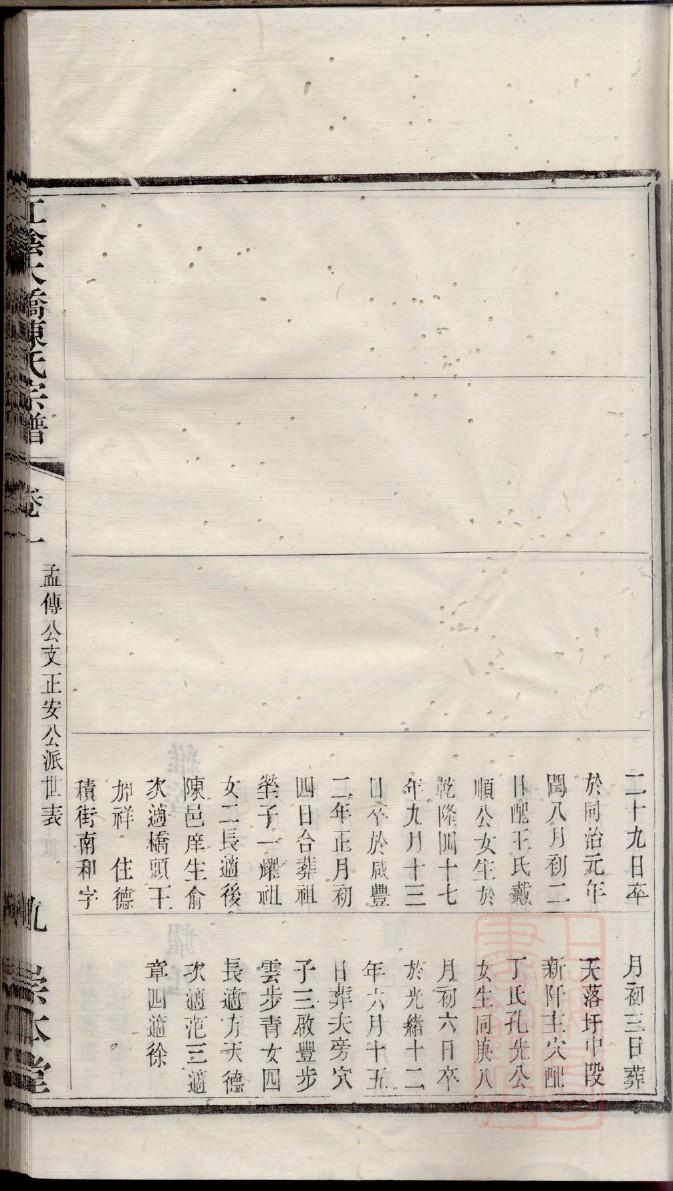 二十九日卒
於同治元年
閏八月初二
日配王氏戴
順公女生於
乾隆四十七
年九月十三
日卒於咸豐
二年正月初
四日合葬祖
塋子一耀祖
女二長適後
陳邑庠生俞
次適橋頭王
祥住德
積街南和字
月初三日葬
天落圩中段
新阡主穴配
丁氏孔先公
女生同庚八
月初六日卒
於光緒十二
年六月十五
日葬夫旁穴
子三啟豐步
雲步青女四
長適方天德
次適范三適
章四適徐
江陰大橋陳氏宗譜
卷一
孟傳公支正安公派世表
九
崇本堂